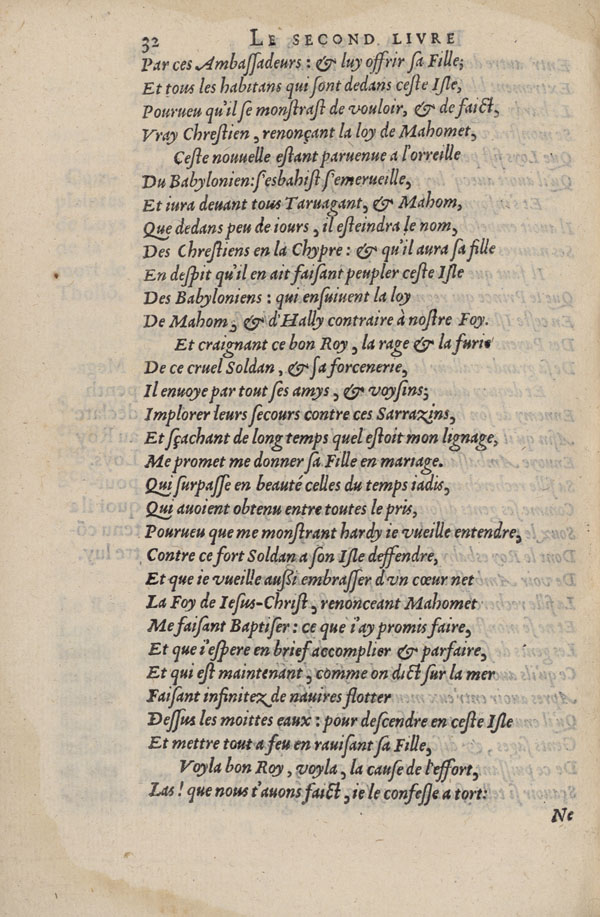 32 LE SECOND LIVRE
Par ces Ambaſſadeurs : & luy offrir ſa Fille;
Et tous les habitans qui ſont dedans ceſte Iſle,
Pourueu qu'il ſe monſtraſt de vouloir, & de faict,
Vray Chreſtien, renonçant la loy de Mahomet,
Ceſte nouuelle eſtant paruenue a l'orreille
Du Babylonien: s'esbahiſt s'emerueille,
Et iura deuant tous Taruagant, & Mahom,
Que dedans peu de iours, il eſteindra le nom,
Des Chreſtiens en la Chypre : & qu'il aura ſa fille
En deſpit qu'il en ait faiſant peupler ceſte Iſle
Des Babyloniens : qui enſuiuent la loy
De Mahom, & d'Hally contraire à noſtre Foy.
Et craignant ce bon Roy, la rage & la furie
De ce cruel Soldan, & ſa forcenerie,
Il enuoye par tout ſes amys, & voyſins;
Implorer leurs ſecours contre ces Sarrazins,
Et ſçachant de long temps quel eſtoit mon lignage,
Me promet me donner ſa Fille en mariage.
Qui ſurpaſſe en beauté celles du temps iadis,
Qui auoient obtenu entre toutes le pris,
Pourueu que me monſtrant hardy ie vueille entendre,
Contre ce fort Soldan a ſon Iſle deffendre,
Et que ie vueille auſſi embraſſer d'vn cœur net
La Foy de Ieſus-Chriſt, renonceant Mahomet
Me faiſant Baptiſer : ce que i'ay promis faire,
Et que i'eſpere en brief accomplier & parfaire,
Et qui eſt maintenant, comme on dict ſur la mer
Faiſant infinitez de nauires flotter
Deſſus les moittes eaux : pour deſcendre en ceſte Iſle
Et mettre tout a feu en rauiſant ſa Fille,
Voyla bon Roy, voyla, la cauſe de l'effort,
Las ! que nous t'auons faict, ie le confeſſe a tort:
Ne